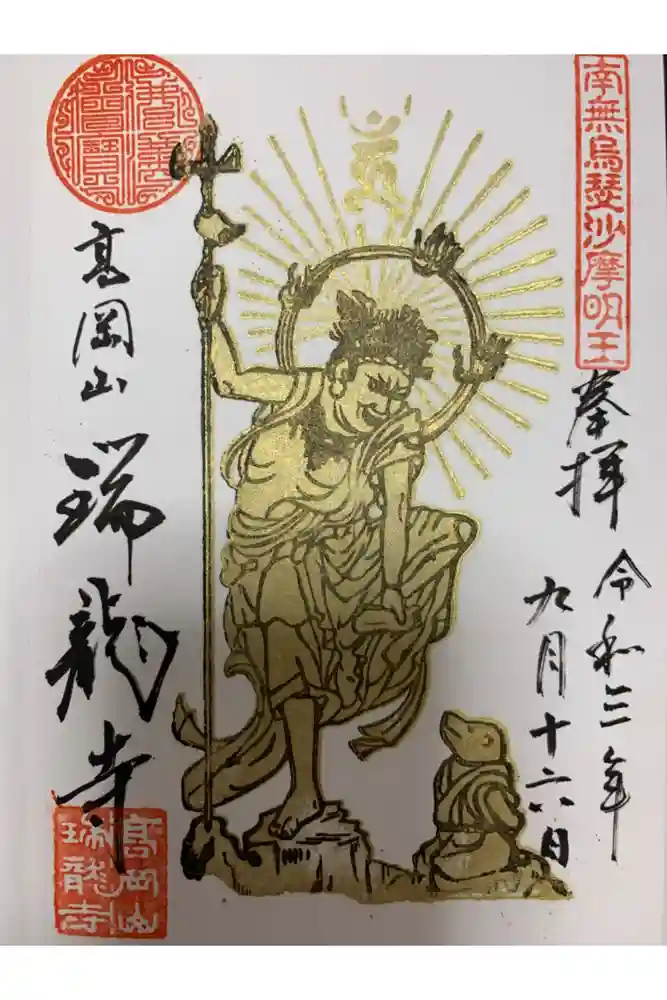 南無烏瑟沙摩明王
奉拝
令和三年
九月十六日
高岡山
瑞龍寺
高岡山
瑞龍寺